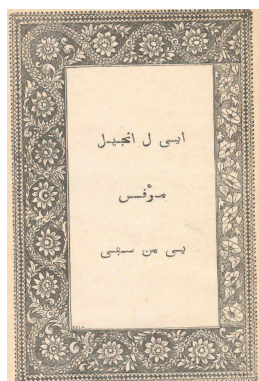 ايسى ل انجيل
مرْقس
يى من سبى